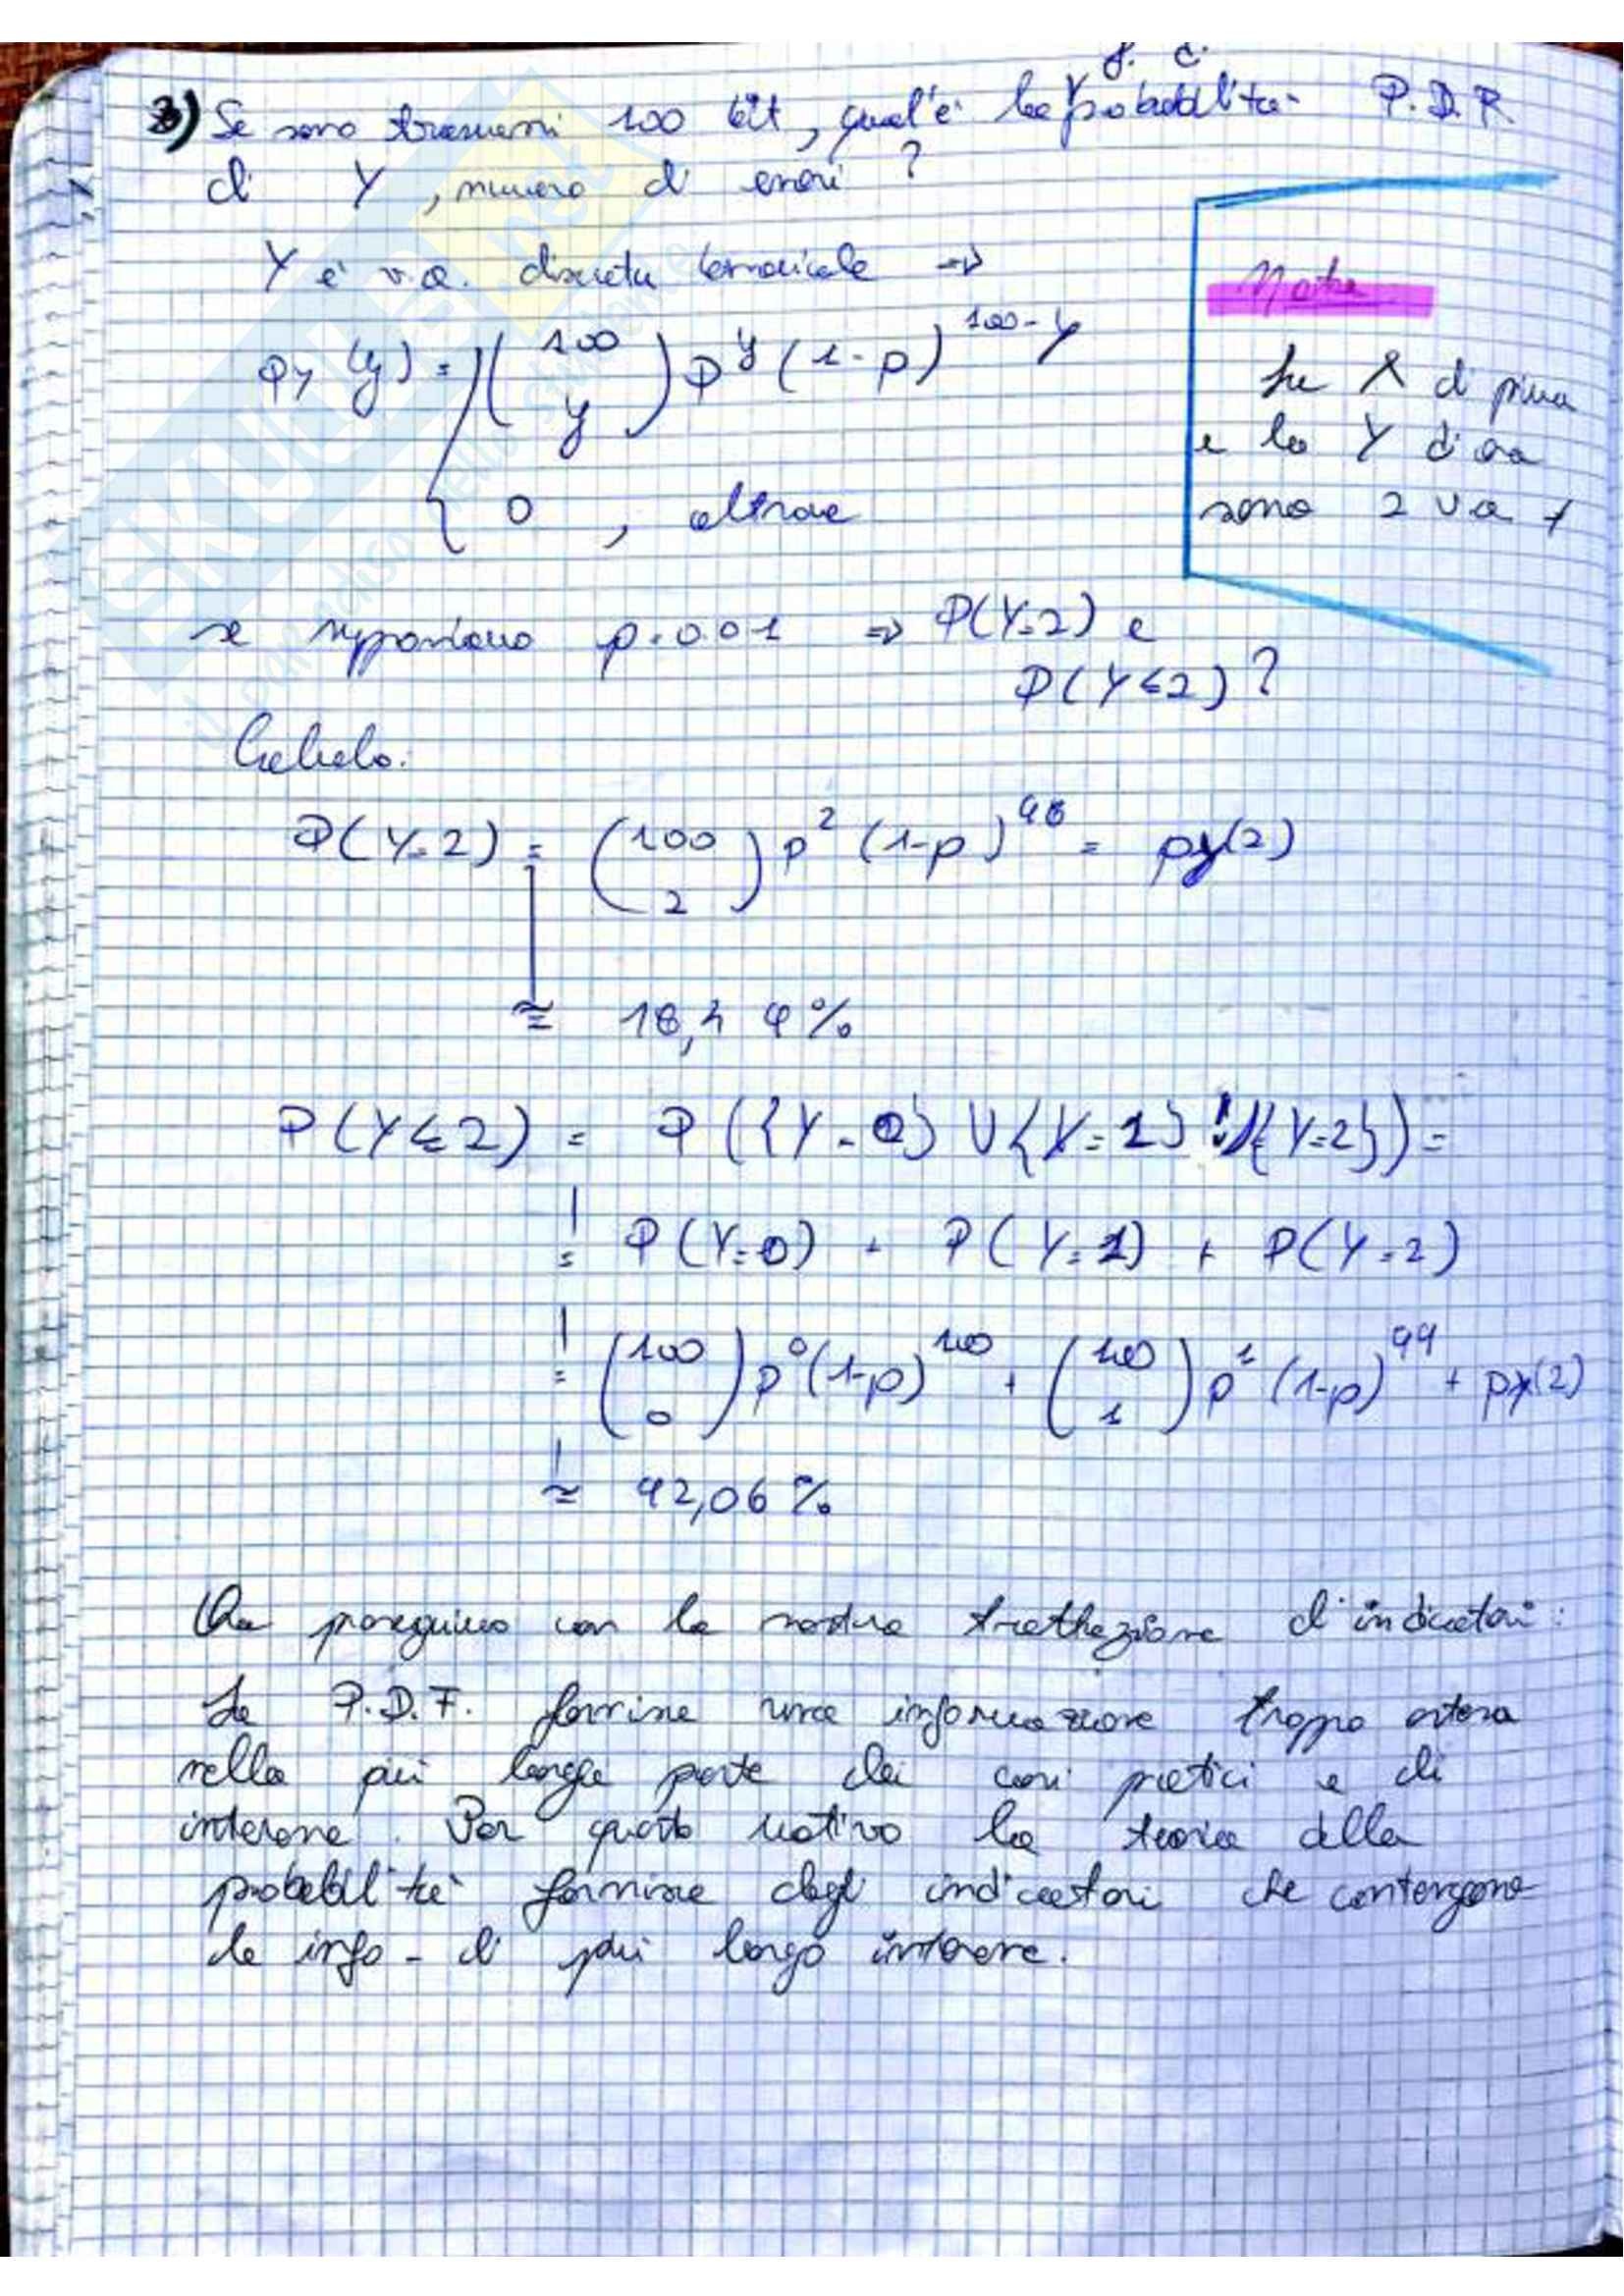 3) Se sono trasmessi 100 bit, qual'è la probabilità P.D.R
di Y, numero di errori ?
Y è v.a. discreta binomiale =>
PY (y) = { (100 y) p^y (1-p)^100-y
0 , altrove
Nota
La X di prima
e la Y di ora
sono 2 v a ≠
se supponiamo p=0.01 => P(Y=2) e
P(Y≤2)?
Calcolo:
P(Y=2) = (100 2) p^2 (1-p)^98 = py(2)
≅ 18,49%
P(Y≤2) = P({Y=0} U {Y=1} U {Y=2}) =
= P(Y=0) + P(Y=1) + P(Y=2)
= (100 0) p^0 (1-p)^100 + (100 1) p^1 (1-p)^99 + py(2)
≃ 92,06%
Ora proseguiamo con la nostra trattazione d'indicatori:
La P.D.F. fornisce una informazione troppo estesa
nella più larga parte dei casi pratici e di
interesse. Per questo motivo la teoria della
probabilità fornisce degli indicatori che contengono
le info - di più largo interesse.
SKUOLA.net
il paradiso dello studente